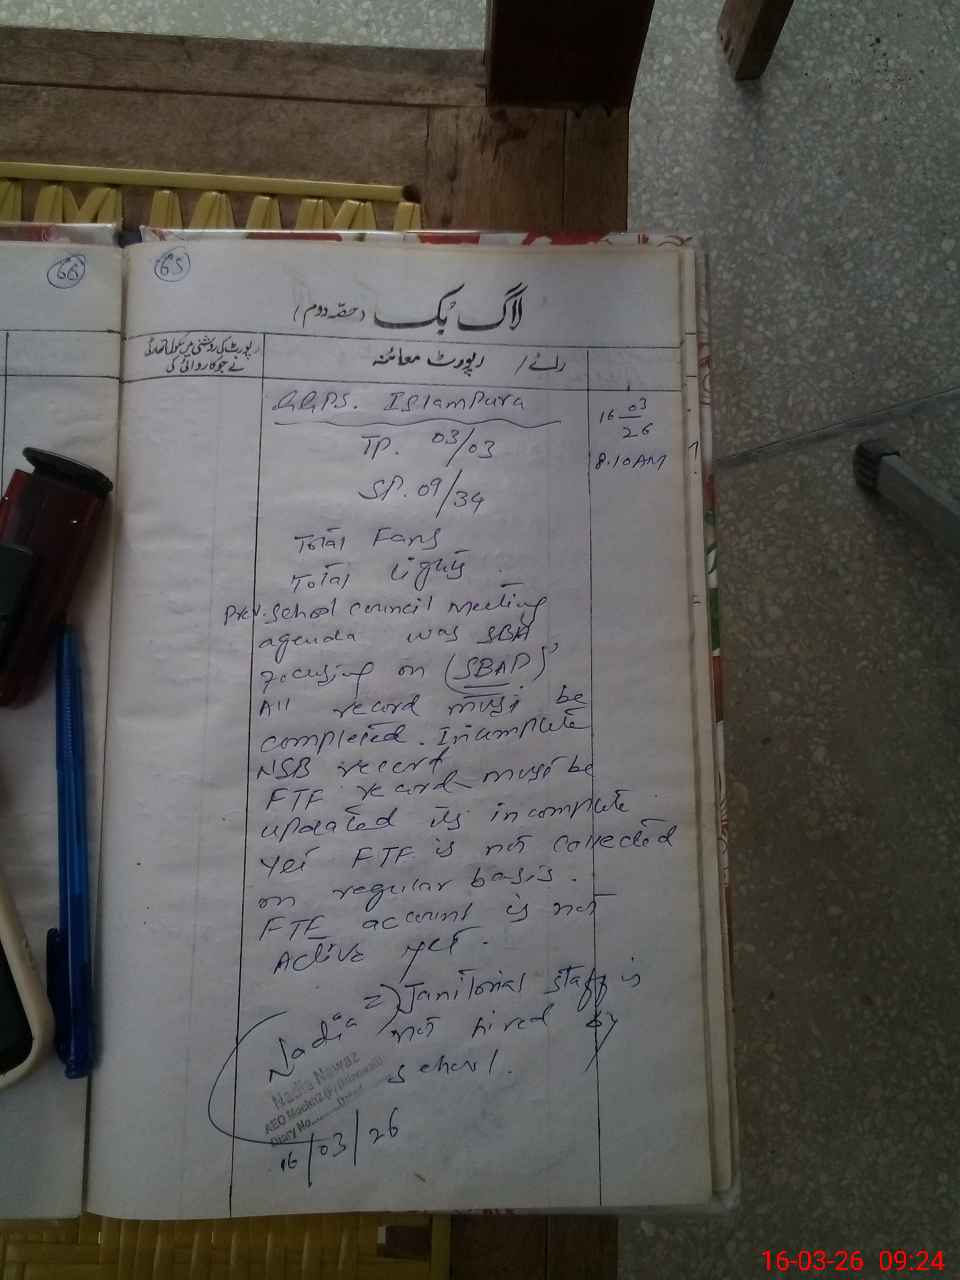 66
65
لاگ بُک (حصّہ دوم)
رپورٹ کی روشنی میں
نے جو کاروائی کی
رائے / رپورٹ معائنہ
G.G.P.S. Islampura
16 03
26
8.10 AM
TP. 03/03
SP. 09/34
Total Fans
Total lights
Prev. School council meeting
agenda was SBA
focusing on (SBAP)
All record must be
completed. Incomplete
NSB record
FTF record must be
updated its incomplete
yet FTF is not collected
on regular basis.
FTF account is not
Active yet.
=) Janitorial staff is
not hired by
school.
Nadia
Nadia Nawaz
AEO
Diary No
16/03/26
16-03-26 09:24